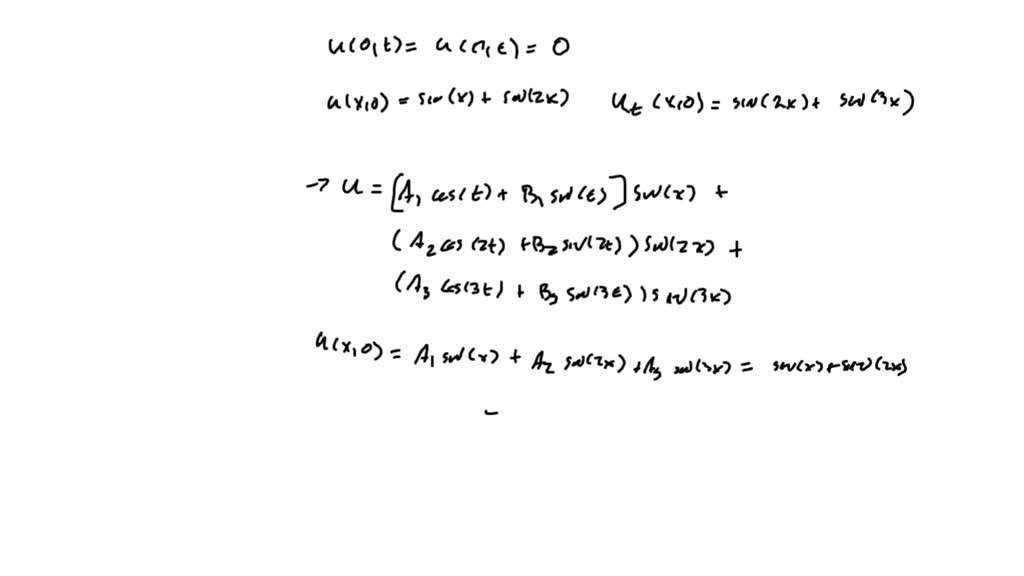 u(0,t) = u(π,t) = 0
u(x,0) = sin(x) + sin(2x) u_t (x,0) = sin(2x) + sin(3x)
→ u = [A_1 cos(t) + B_1 sin(t)] sin(x) +
(A_2 cos(2t) + B_2 sin(2t)) sin(2x) +
(A_3 cos(3t) + B_3 sin(3t)) sin(3x)
u(x,0) = A_1 sin(x) + A_2 sin(2x) + A_3 sin(3x) = sin(x) + sin(2x)